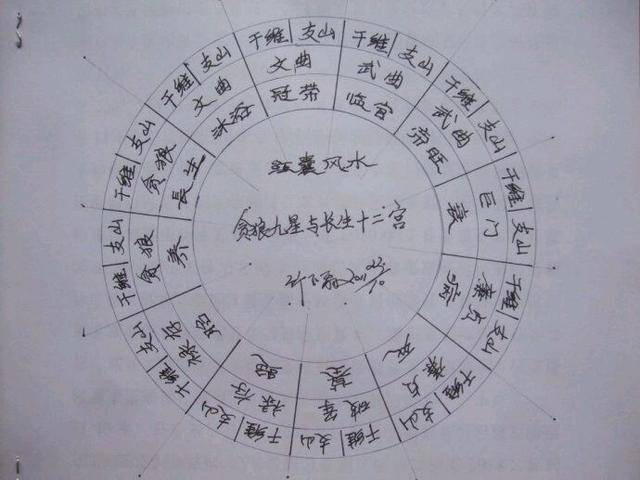 风水
贪狼九星与长生十二宫
干维 支山
文曲
冠带
干维 支山
武曲
临官
干维 支山
武曲
帝旺
干维 支山
巨门
衰
干维 支山
廉贞
病
干维 支山
廉贞
死
干维 支山
破军
墓
干维 支山
禄存
干维 支山
禄存
胎
干维 支山
贪狼
养
干维 支山
贪狼
長生
干维 支山
文曲
沐浴